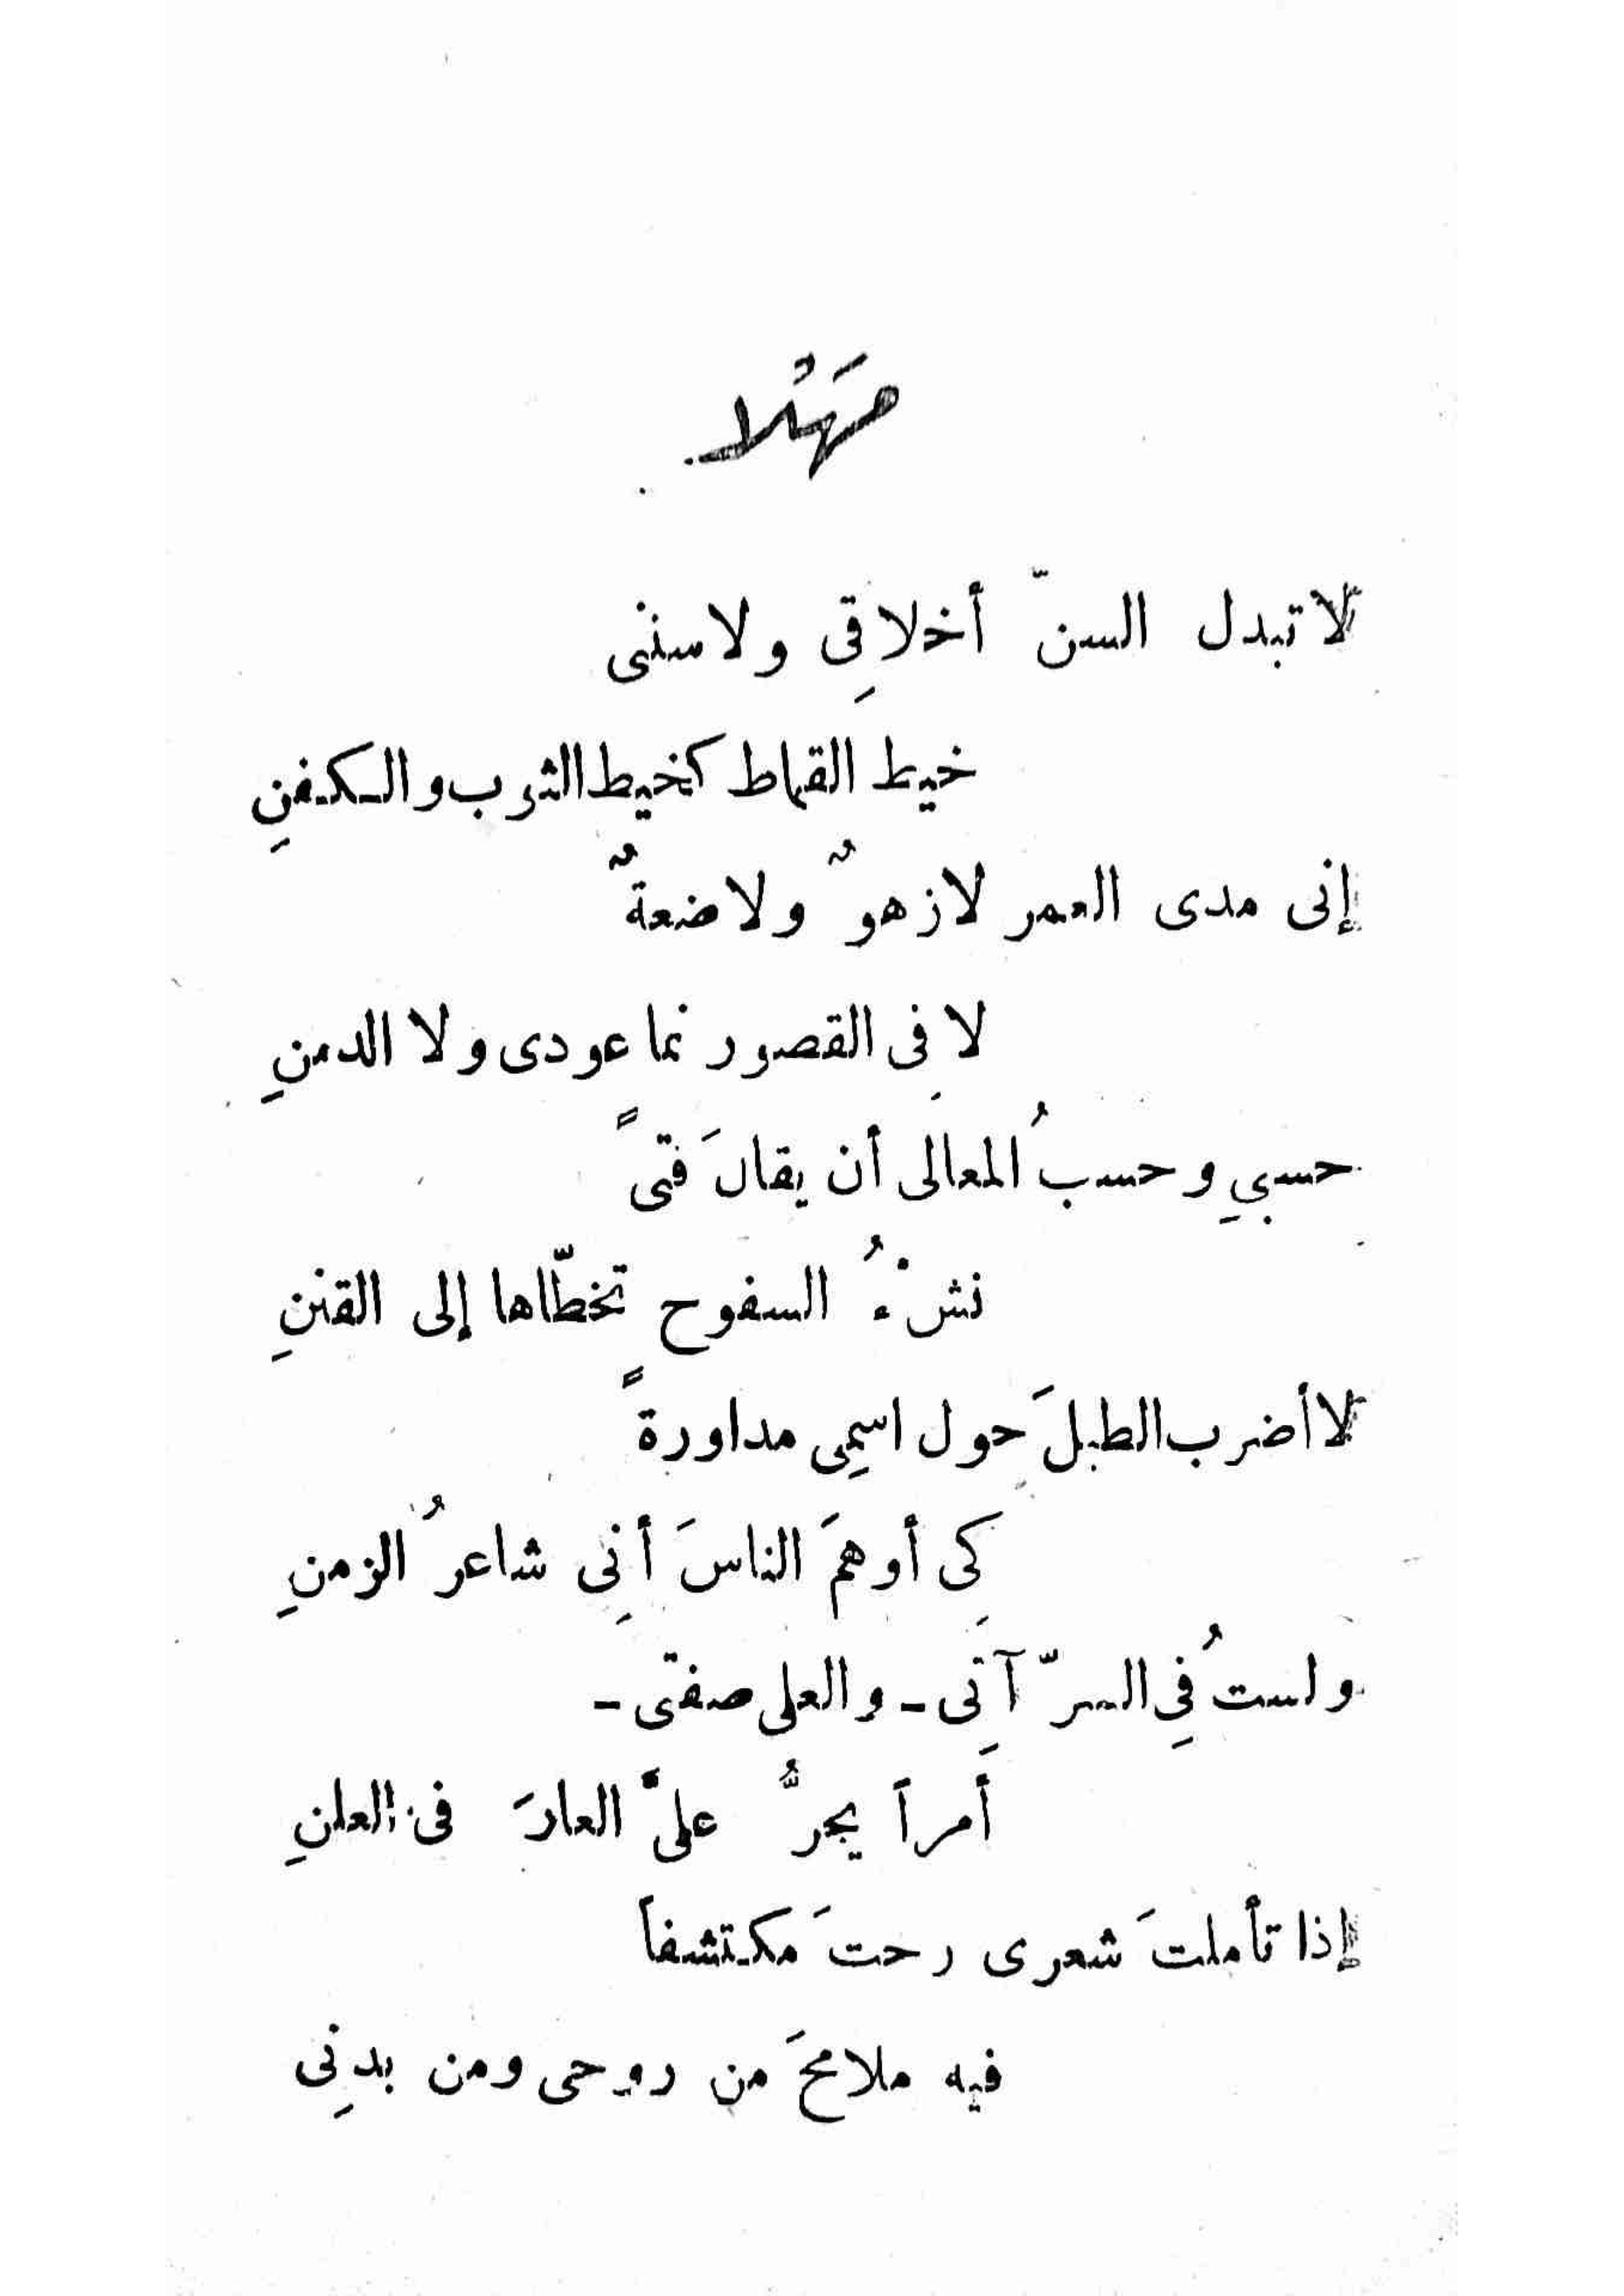 مَهْلا
لا تبدل السنّ أخلاقِى ولا سننى
خيط القماط كخيط الثوب والكفنِ
إنى مدى العمر لا زهوٌ ولا ضعةٌ
لا فِى القصور نما عودى ولا الدمنِ
حسبيِ وحسبُ المعالى أن يقالَ فتىً
نشْءُ السفوح تخطّاها إلى القننِ
لا أضرب الطبلَ حول اسمِى مداورةً
كِى أوهمَ الناسَ أنِى شاعرُ الزمنِ
ولستُ فِى السرّ آتِى - والعلى صفتى -
أمراً يجرُّ علىَّ العارَ فى العلنِ
إذا تأملتَ شعرى رحتَ مكتشفاً
فيه ملامحَ من روحى ومن بدنِى